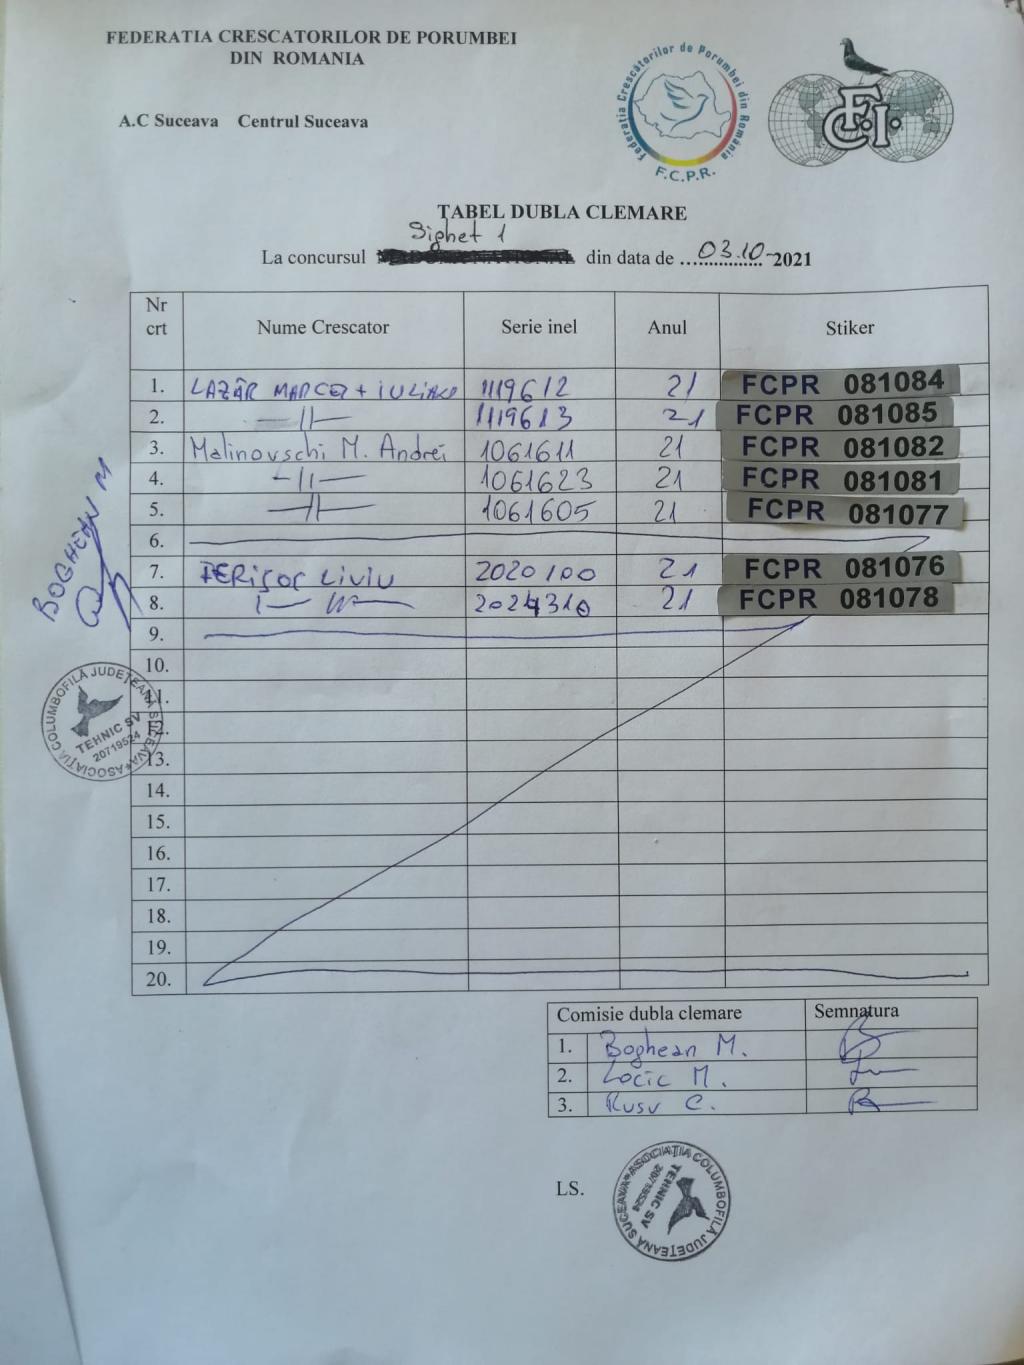 FEDERATIA CRESCATORILOR DE PORUMBEI
DIN ROMANIA
A.C Suceava Centrul Suceava
Federatia Crescătorilor de Porumbei din România
F.C.P.R.
F.C.I.
TABEL DUBLA CLEMARE
Sighet 1
La concursul din data de 03.10-2021
Nr crt Nume Crescator Serie inel Anul Stiker
1. LAZĂR MARCEL + IULIAN 1119612 21 FCPR 081084
2. —//— 1119613 21 FCPR 081085
3. Malinovschi M. Andrei 1061611 21 FCPR 081082
4. —//— 1061623 21 FCPR 081081
5. —//— 1061605 21 FCPR 081077
6.
7. LIVIU 2020100 21 FCPR 081076
8. 21 FCPR 081078
9.
10.
11.
12.
13.
14.
15.
16.
17.
18.
19.
20.
BOGHEAN M
ASOCIAȚIA COLUMBOFILĂ JUDEȚEANĂ SUCEAVA
TEHNIC SV
20719524
Comisie dubla clemare Semnatura
1. Boghean M.
2. Locic M.
3. Rusu C.
LS.
ASOCIAȚIA COLUMBOFILĂ JUDEȚEANĂ SUCEAVA
TEHNIC SV
20719524